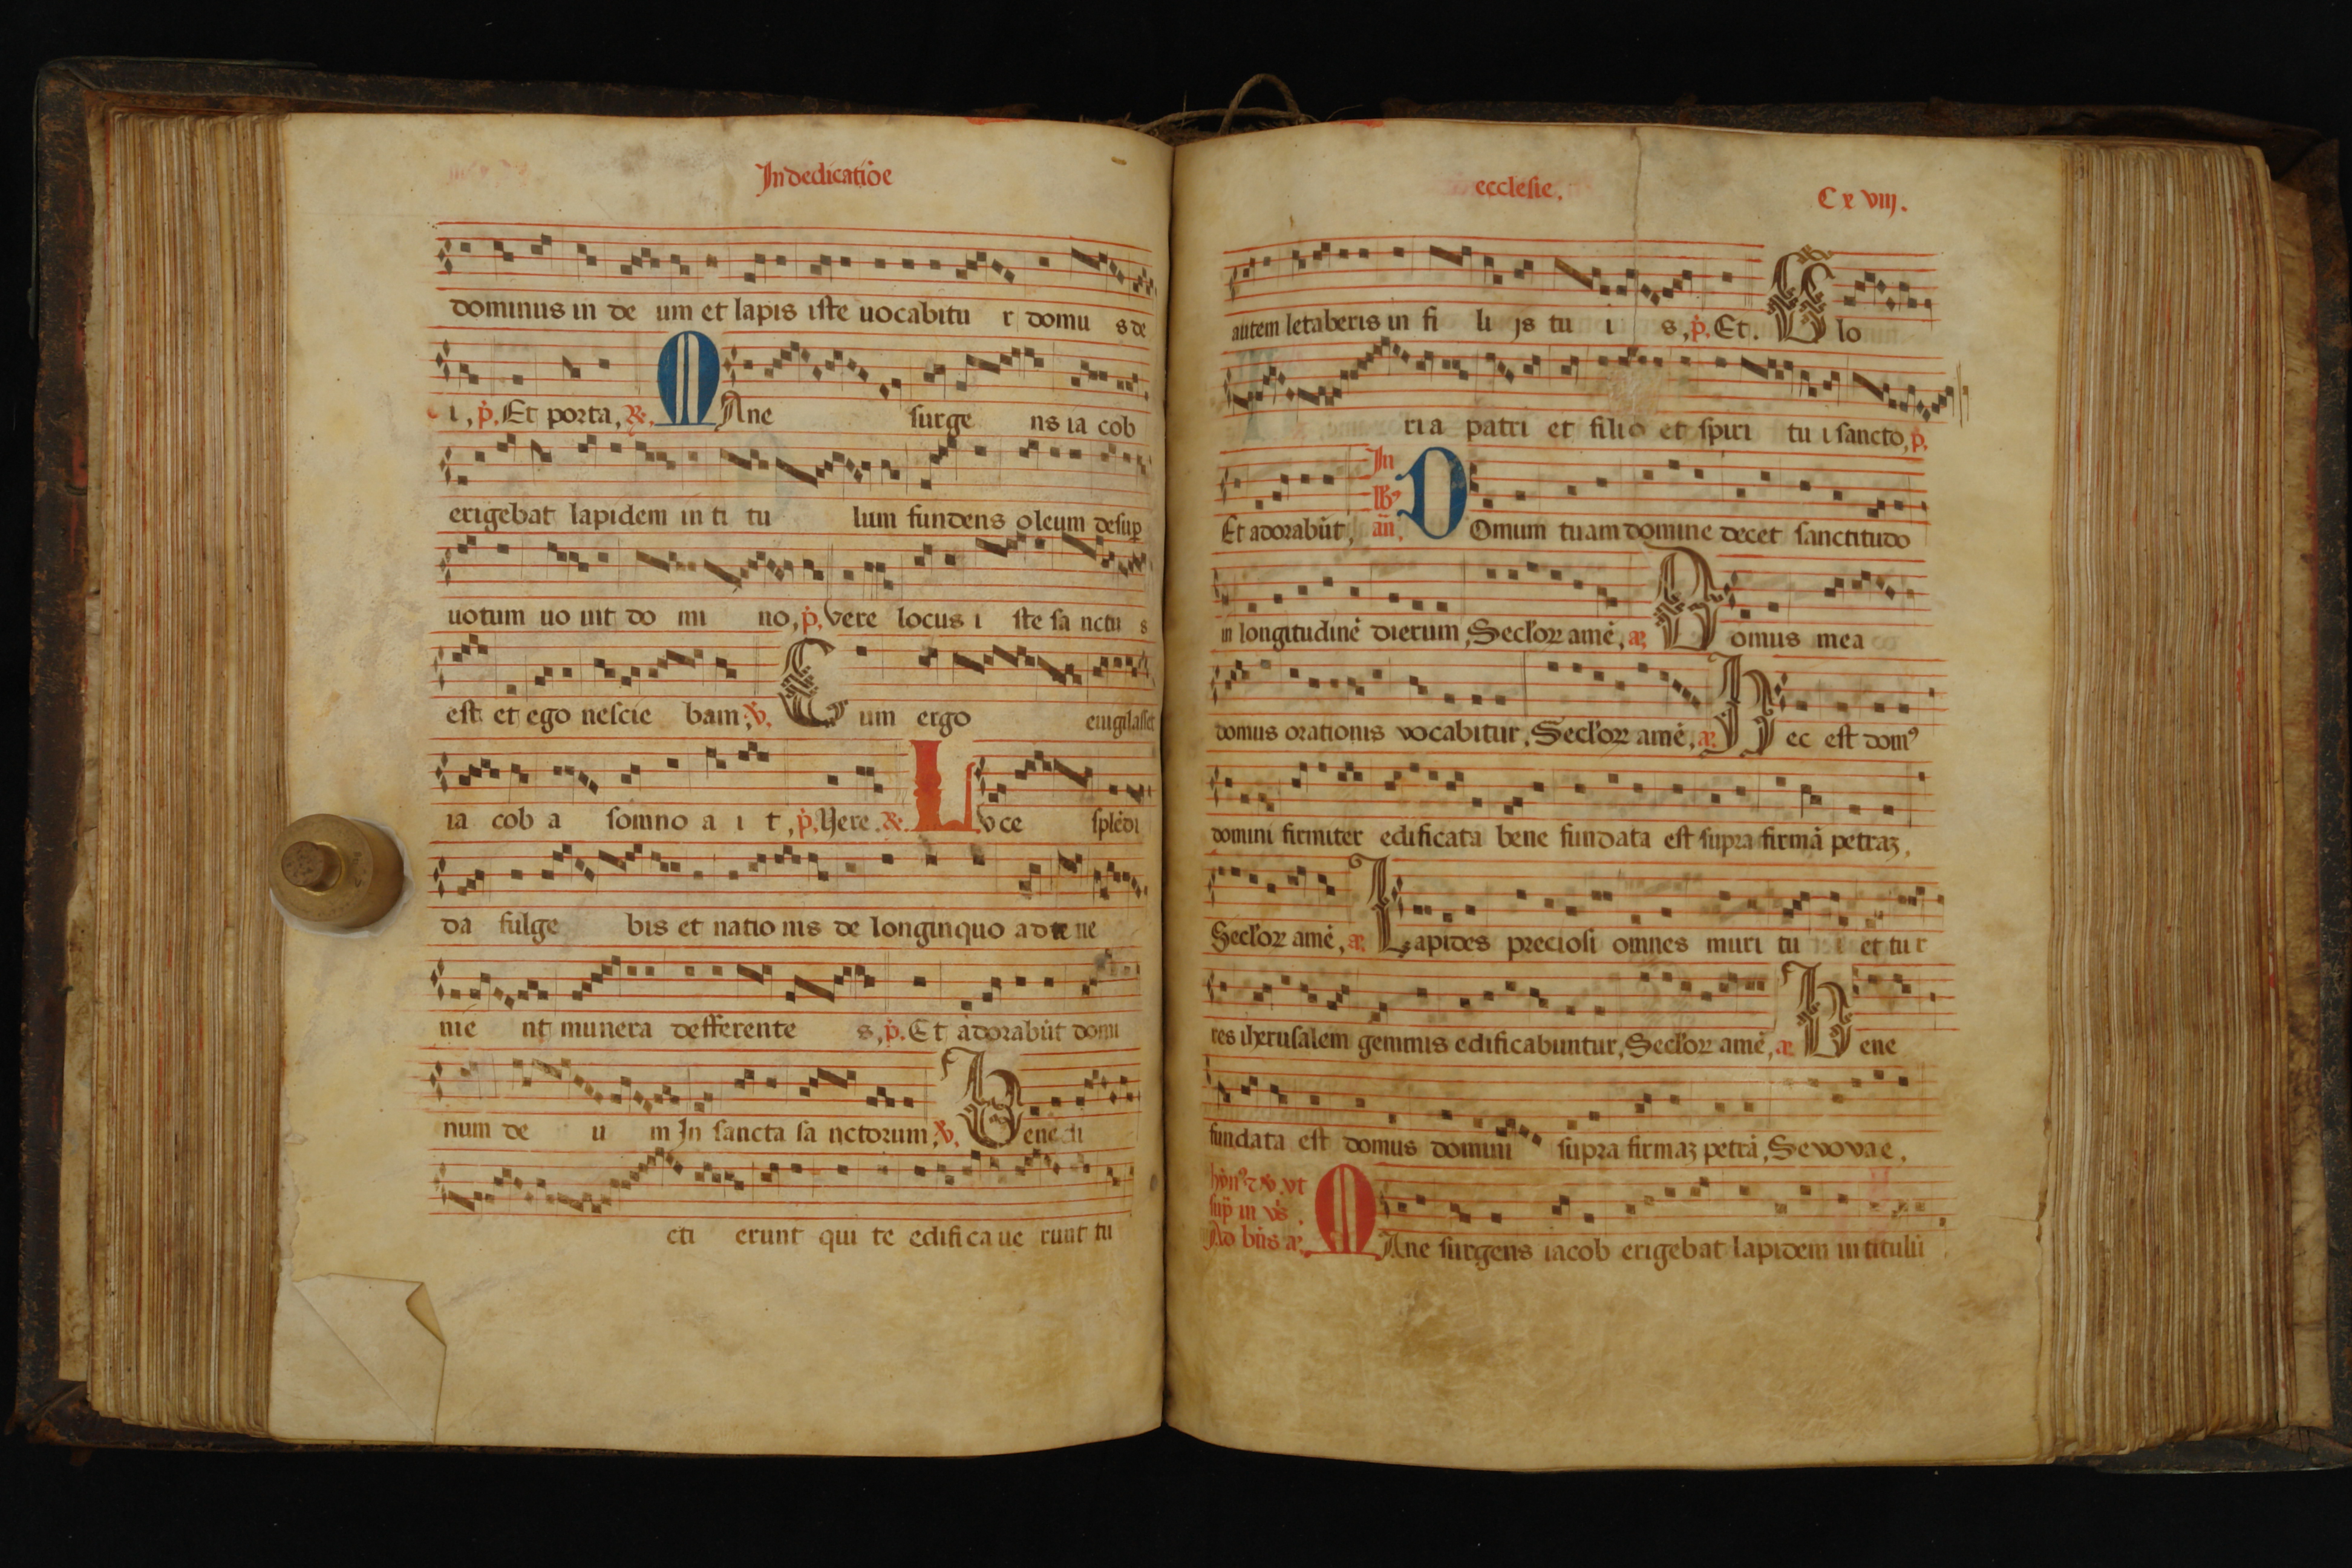 In dedicatiōe
dominus in de um et lapis iste uocabitu r domu s de
i, p̄. Et porta, ℟. MAne surge ns ia cob
erigebat lapidem in ti tu lum fundens oleum desuꝑ
uotum uo uit do mi no, p̄. vere locus i ste sa nctu s
est et ego nescie bam; ℣. Cum ergo euigilasset
ia cob a somno a i t, p̄. Vere. ℟. LVce splēdi
da fulge bis et natio nis de longinquo ad te ue
nie nt munera defferente s, p̄. Et adorabūt domi
num de u m In sancta sa nctorum, ℣. Benedi
cti erunt qui te edificaue runt tu
ecclesie.
Cxviij.
autem letaberis in fi li js tu i s, p̄. Et. Glo
ria patri et filio et spiri tu i sancto, p̄.
Et adorabūt, In lb' an̄. DOmum tuam domine decet sanctitudo
in longitudinē dierum, Secl'oꝝ amē, æ. Domus mea
domus orationis vocabitur, Secl'oꝝ amē, æ. Hec est dom⁹
domini firmiter edificata bene fundata est supra firmā petraꝫ,
Secl'oꝝ amē, æ. Lapides preciosi omnes muri tu i et tur
res iherusalem gemmis edificabuntur, Secl'oꝝ amē, æ. Bene
fundata est domus domini supra firmaꝫ petrā, Sevovae.
hȳn⁹ ⁊ ℣. vt
sup̄ in vs̄.
Ad bn̄s æ. MAne surgens iacob erigebat lapidem in titulū